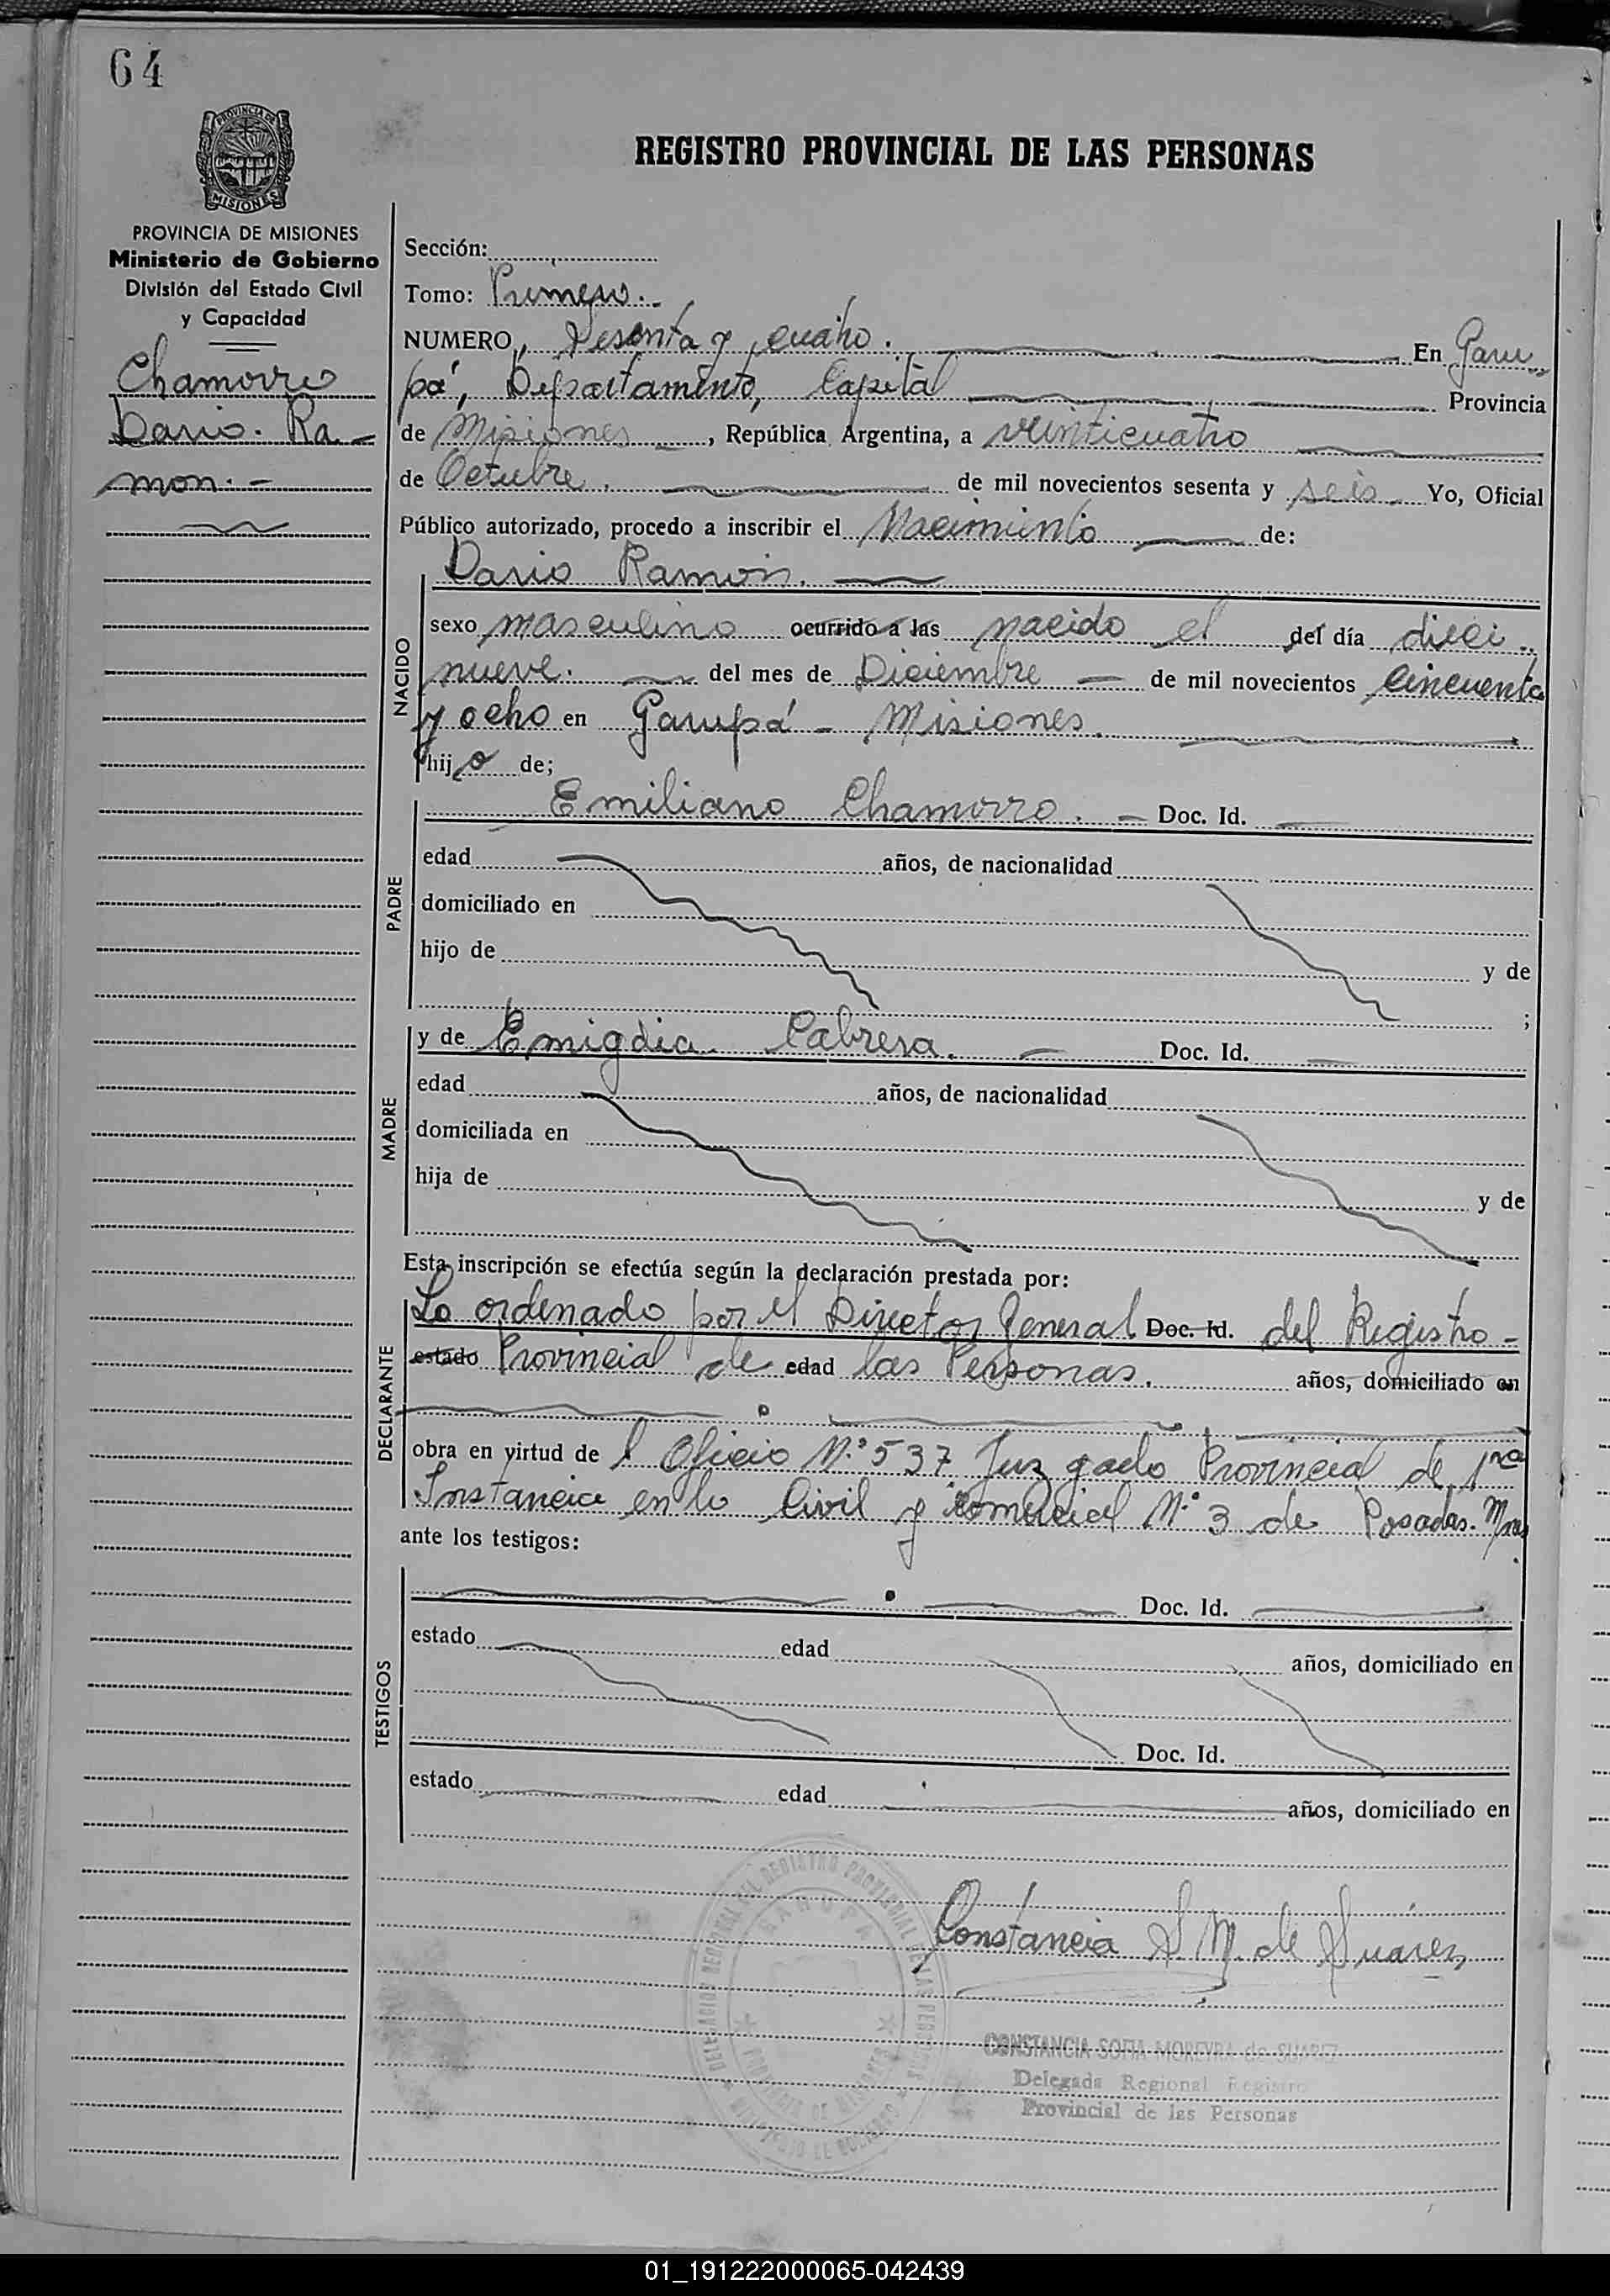 64
PROVINCIA DE
MISIONES
REGISTRO PROVINCIAL DE LAS PERSONAS
PROVINCIA DE MISIONES
Ministerio de Gobierno
División del Estado Civil
y Capacidad
Chamorro
Dario. Ra-
mon.-
Sección:
Tomo: Primero.-
NUMERO, Sesenta y cuatro. En Garu
pá, Departamento, Capital Provincia
de Misiones, República Argentina, a veinticuatro
de Octubre. de mil novecientos sesenta y seis. Yo, Oficial
Público autorizado, procedo a inscribir el Nacimiento de:
NACIDO
Dario Ramón.
sexo masculino ocurrido a las nacido el del día dieci
nueve. del mes de Diciembre de mil novecientos cincuenta
y ocho en Garupá - Misiones.
hijo de;
PADRE
Emiliano Chamorro. Doc. Id.
edad años, de nacionalidad
domiciliado en
hijo de y de
;
MADRE
y de Emigdia Cabrera. Doc. Id.
edad años, de nacionalidad
domiciliada en
hija de y de
Esta inscripción se efectúa según la declaración prestada por:
DECLARANTE
Lo ordenado por el Director General Doc. Id. del Registro-
estado Provincial de edad las Personas. años, domiciliado en
obra en virtud de l Oficio N.° 537 Juzgado Provincial de 1ra
Instancia en lo Civil y Comercial N.° 3 de Posadas. Mnes
ante los testigos:
TESTIGOS
Doc. Id.
estado edad años, domiciliado en
Doc. Id.
estado edad años, domiciliado en
DELEGACION REGIONAL DEL REGISTRO PROVINCIAL DE LAS PERSONAS
GARUPA
PROVINCIA DE MISIONES
Constancia S. M. de Suarez
CONSTANCIA SOFIA MOREYRA de SUAREZ
Delegada Regional Registro
Provincial de las Personas
01_191222000065-042439